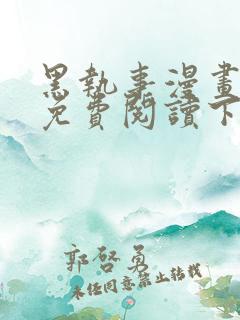 黑執事漫畫
免費閱讀下
郭啓勇
未经同意禁止转载